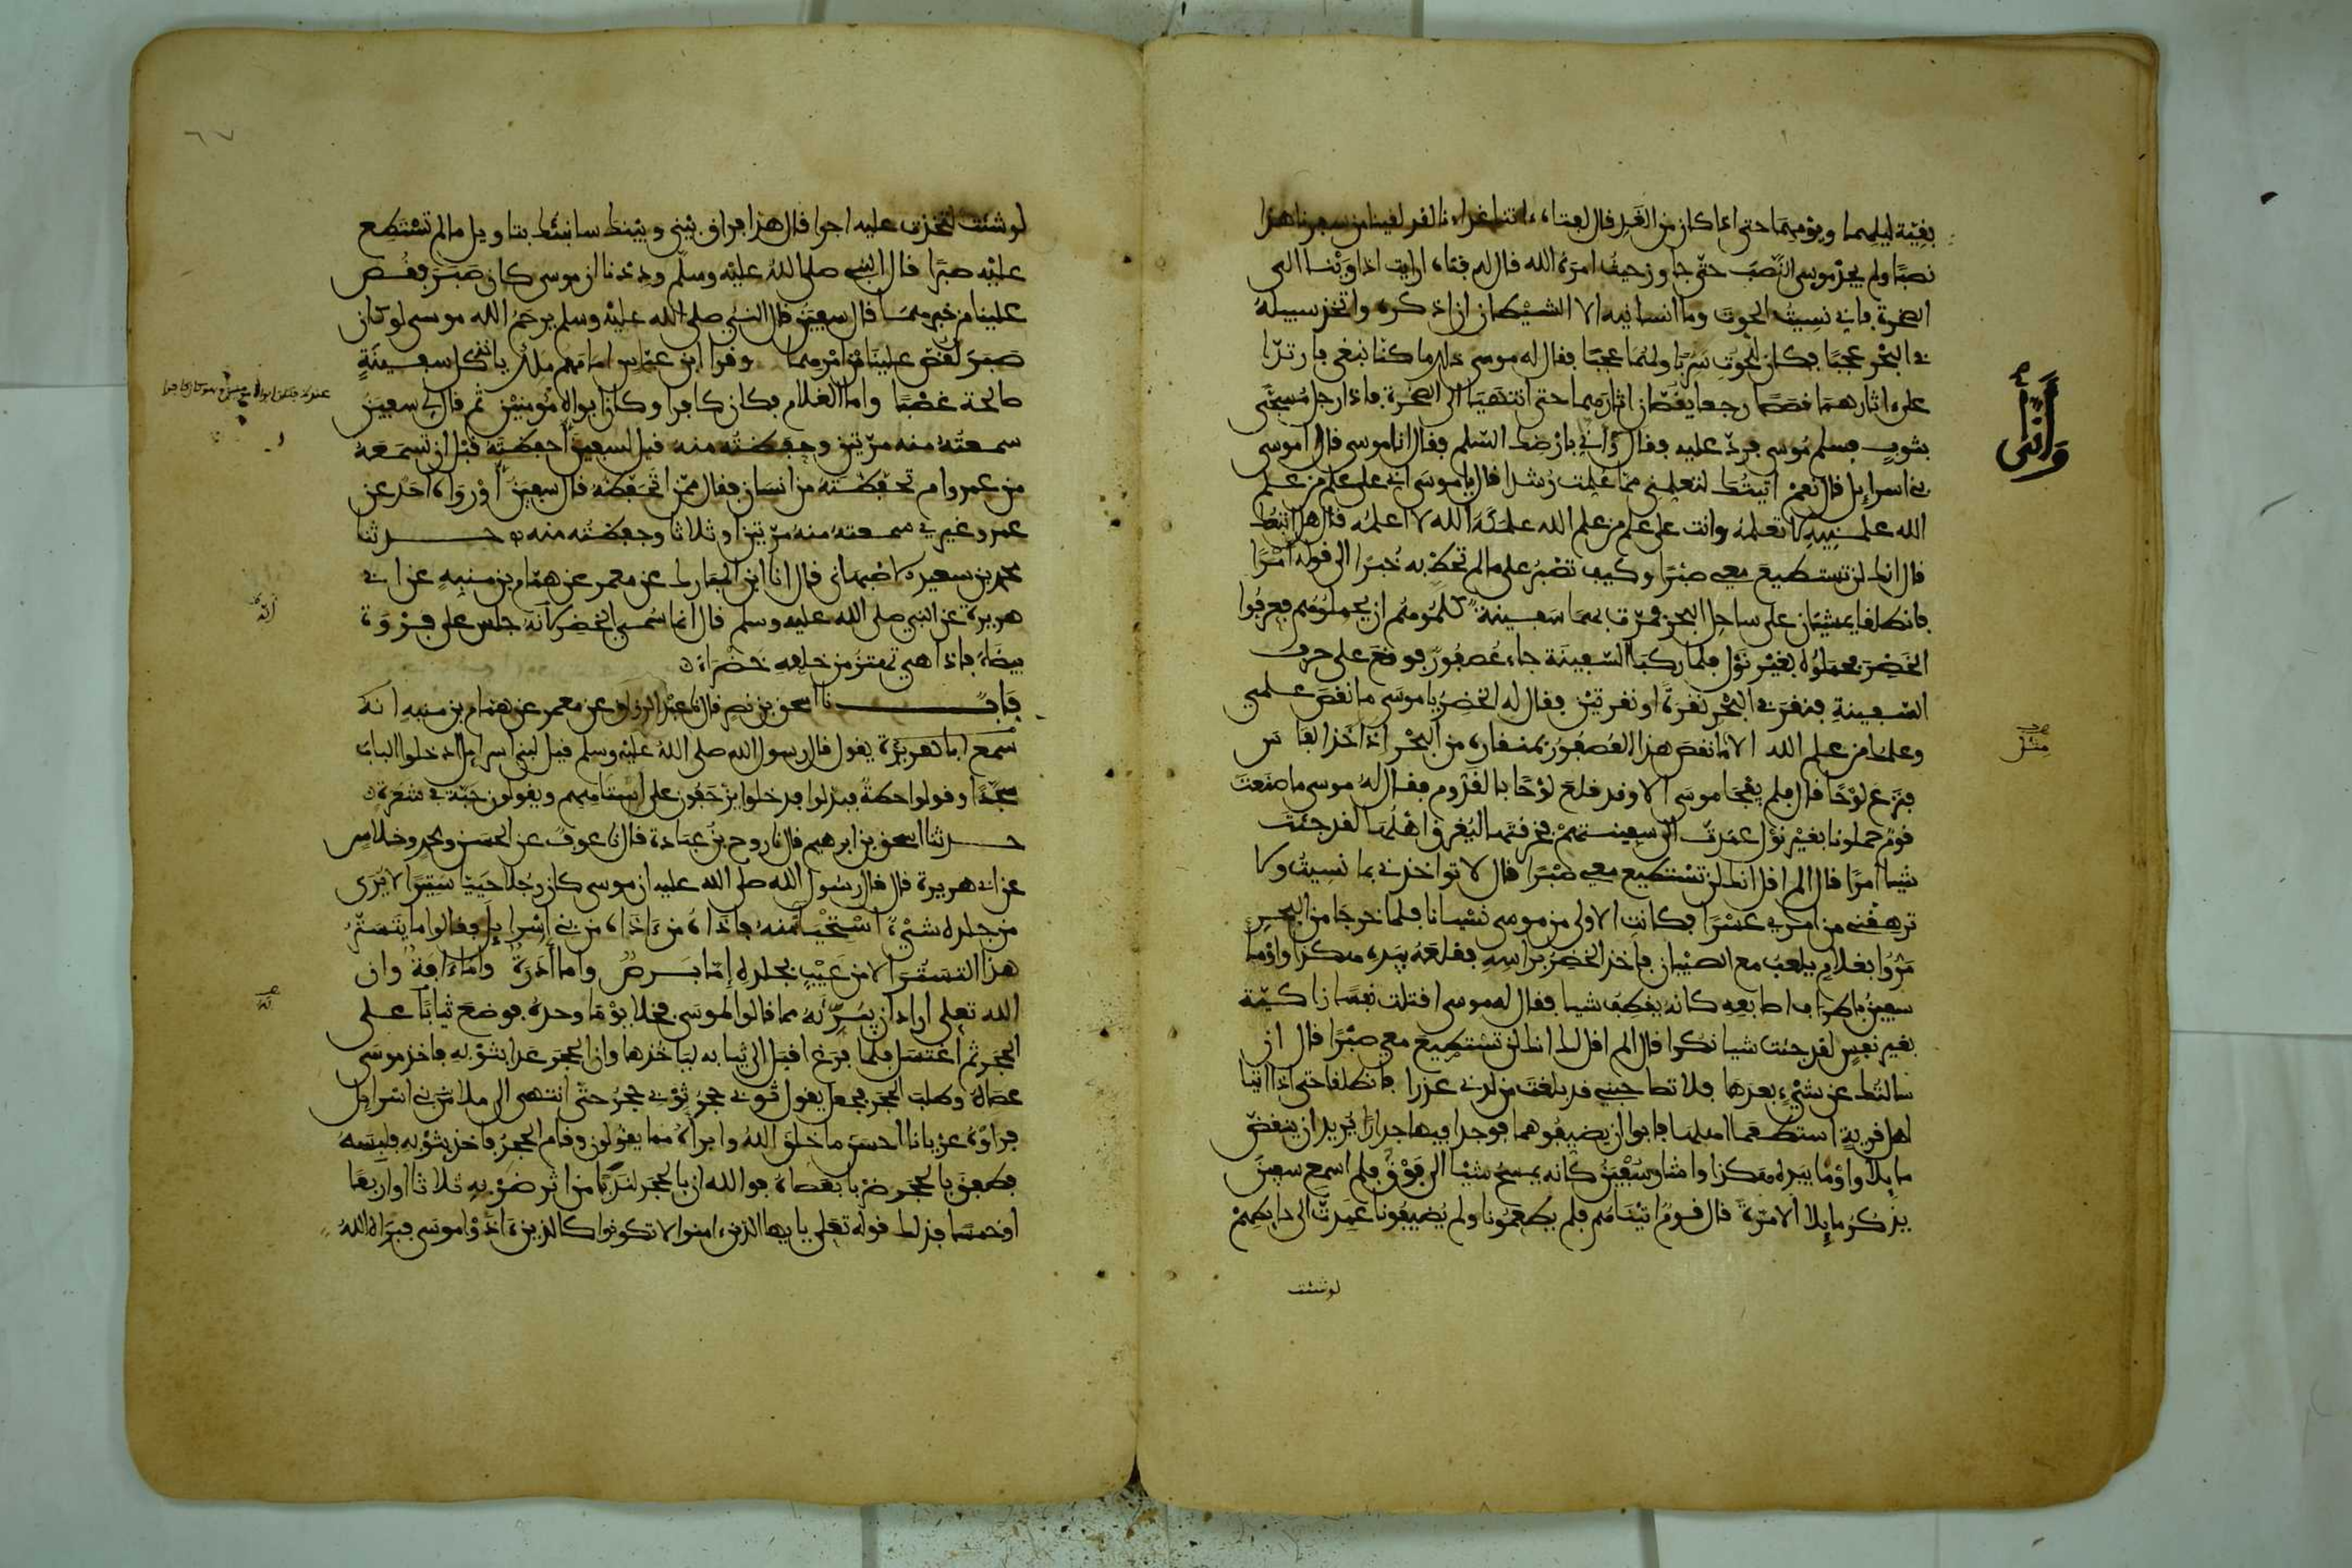 بقية ليلهما ويومهما حتى اذا كان من الغد قال لفتاه ءاتنا غداءنا لقد لقينا من سفرنا هذا
نصبا ولم يجد موسى النصب حتى جاوز حيث امره الله قال له فتاه ارايت اذ اوينا الى
الصخرة فاني نسيت الحوت وما انسانيه الا الشيطان ان اذكره واتخذ سبيله
في البحر عجبا فكان للحوت سربا ولهما عجبا فقال له موسى ذلك ما كنا نبغي فارتدا
على اثارهما قصصا رجعا يقصان اثارهما حتى انتهيا الى الصخرة فاذا رجل مسجى
بثوب فسلم موسى فرد عليه فقال وانى بارضك السلم فقال انا موسى قال اموسى
بني اسراءيل قال نعم اتيتك لتعلمني مما علمت رشدا قال يا موسى اني على علم من علم
الله علمنيه لا تعلمه وانت على علم من علم الله علمكه الله لا اعلمه قال هل اتبعك
قال انك لن تستطيع معي صبرا وكيف تصبر على ما لم تحط به خبرا الى قوله امرا
فانطلقا يمشيان على ساحل البحر فمرت بهما سفينة كلموهم ان يحملوهم فعرفوا
الخضر فحملوه بغير نول فلما ركبا السفينة جاء عصفور فوقع على حرف
السفينة فنقر في البحر نقرة او نقرتين فقال له الخضر يا موسى ما نقص علمي
وعلمك من علم الله الا ما نقص هذا العصفور بمنقاره من البحر اذ اخذ الفاس
فنزع لوحا قال فلم يفجا موسى الا وقد قلع لوحا بالقدوم فقال له موسى ما صنعت
قوم حملونا بغير نول عمدت الى سفينتهم فخرقتها ليغرق اهلها لقد جئت
شيا امرا قال الم اقل انك لن تستطيع معي صبرا قال لا تواخذني بما نسيت ولا
ترهقني من امري عسرا فكانت الاولى من موسى نسيانا فلما خرجا من البحر
مروا بغلام يلعب مع الصبيان فاخذ الخضر براسه فقلعه بيده هكذا واوما
سفين باطراف اصابعه كانه يقطف شيا فقال له موسى اقتلت نفسا زاكية
بغير نفس لقد جئت شيا نكرا قال الم اقل لك انك لن تستطيع معي صبرا قال ان
سالتك عن شيء بعدها فلا تصاحبني قد بلغت من لدني عذرا فانطلقا حتى اذا اتيا
اهل قرية استطعما اهلها فابوا ان يضيفوهما فوجدا فيها جدارا يريد ان ينقض
مايلا واوما بيده هكذا واشار سفين كانه يمسح شيا الى فوق فلم اسمع سفين
يذكر مايلا الا مرة قال قوم اتيناهم فلم يطعمونا ولم يضيفونا عمدت الى حايطهم
لوشئت
وانى
لوشئت لتخذت عليه اجرا قال هذا فراق بيني وبينك سانبئك بتاويل ما لم تستطع
عليه صبرا قال النبي صلى الله عليه وسلم وددنا ان موسى كان صبر فقص
علينا من خبرهما قال سفين قال النبي صلى الله عليه وسلم يرحم الله موسى لو كان
صبر لقص علينا من امرهما وقرا ابن عباس امامهم ملك ياخذ كل سفينة
صالحة غصبا واما الغلام فكان كافرا وكان ابواه مومنين ثم قال لي سفين
سمعته منه مرتين وحفظته منه قيل لسفين احفظته قبل ان تسمعه
من عمرو ام تحفظته من انسان فقال ممن اتحفظه قال سفين او رواه احد عن
عمرو غيري سمعته منه مرتين او ثلاثا وحفظته منه حدثنا
محمد بن سعيد الاصبهاني قال انا ابن المبارك عن معمر عن همام بن منبه عن ابي
هريرة عن النبي صلى الله عليه وسلم قال انما سمي الخضر لانه جلس على فروة
بيضاء فاذا هي تهتز من خلفه خضراء
باب نا اسحق بن نصر قال نا عبد الرزاق عن معمر عن همام بن منبه انه
سمع ابا هريرة يقول قال رسول الله صلى الله عليه وسلم قيل لبني اسراءيل ادخلوا الباب
سجدا وقولوا حطة فبدلوا فدخلوا يزحفون على استاههم ويقولون حبة في شعرة
حدثنا اسحق بن ابرهيم قال نا روح بن عبادة قال نا عوف عن الحسن ومحمد وخلاس
عن ابي هريرة قال قال رسول الله صلى الله عليه ان موسى كان رجلا حييا ستيرا لا يرى
من جلده شيء استحياء منه فاذاه من ءاذاه من بني اسراءيل فقالوا ما يتستر
هذا التستر الا من عيب بجلده اما برص واما ادرة واما ءافة وان
الله تعلى اراد ان يبرئه مما قالوا لموسى فخلا يوما وحده فوضع ثيابا على
الحجر ثم اغتسل فلما فرغ اقبل الى ثيابه لياخذها وان الحجر عدا بثوبه فاخذ موسى
عصاه وطلب الحجر فجعل يقول ثوبي حجر ثوبي حجر حتى انتهى الى ملا من بني اسراءيل
فراوه عريانا احسن ما خلق الله وابراه مما يقولون وقام الحجر فاخذ بثوبه فلبسه
فطفق بالحجر ضربا بعصاه فوالله ان بالحجر لندبا من اثر ضربه ثلاثا او اربعا
او خمسا فذلك قوله تعلى يايها الذين ءامنوا لا تكونوا كالذين ءاذوا موسى فبراه الله